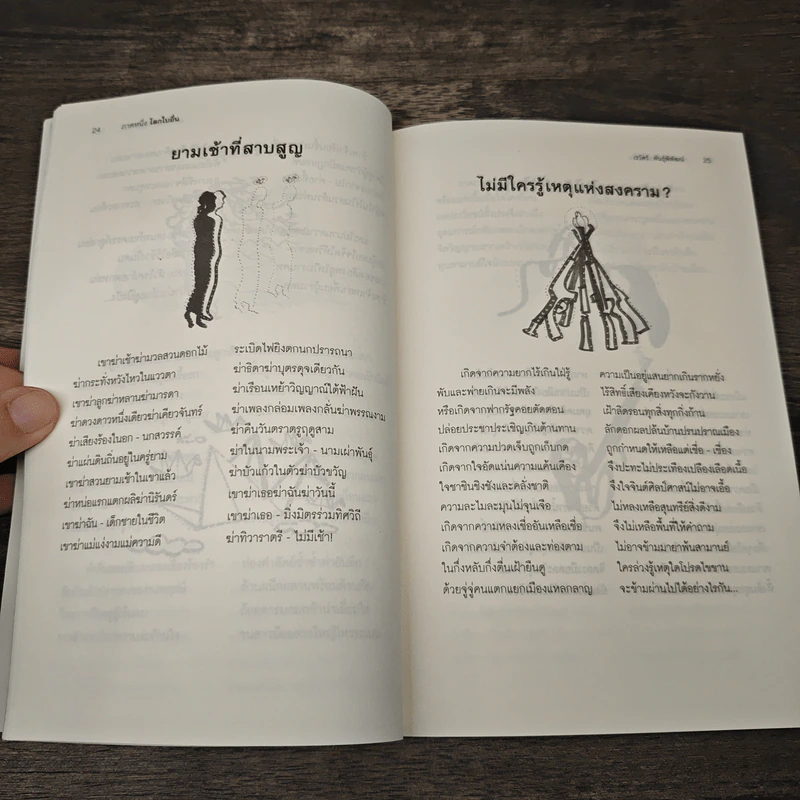 24 ภาคหนึ่ง โลกใบอื่น
ยามเช้าที่สาบสูญ
เขาฆ่าเช้าฆ่ามวลสวนดอกไม้ ระเบิดไฟยิงตกนกปรารถนา
ฆ่ากระทั่งหวังไหวในแววตา ฆ่าธิดาฆ่าบุตรดุจเดียวกัน
เขาฆ่าลูกฆ่าหลานฆ่ามารดา ฆ่าเรือนเหย้าวิญญาณใต้ฟ้าฝัน
ฆ่าดวงดาวหนึ่งเดียวฆ่าเคียวจันทร์ ฆ่าเพลงกล่อมเพลงกลั่นฆ่าพรรณงาม
ฆ่าเสียงร้องในอก - นกสวรรค์ ฆ่าคืนวันตราตรูฤดูสาม
ฆ่าแผ่นดินถิ่นอยู่ในครู่ยาม ฆ่าในนามพระเจ้า - นามเผ่าพันธุ์
เขาฆ่าสวนยามเช้าในเขาแล้ว ฆ่าบัวแก้วในตัวฆ่าบัวขวัญ
ฆ่าหน่อแรกแตกผลิฆ่านิรันดร์ เขาฆ่าเธอฆ่าฉันฆ่าวันนี้
เขาฆ่าฉัน - เด็กชายในชีวิต เขาฆ่าเธอ - มิ่งมิตรร่วมทิศวิถี
เขาฆ่าแม่แง่งามแม่ความดี ฆ่าทิวาราตรี - ไม่มีเช้า!
25
ไม่มีใครรู้เหตุแห่งสงคราม?
เกิดจากความยากไร้เกินใฝ่รู้ ความเป็นอยู่แสนยากเกินรากหยั่ง
พับและพ่ายเกินจะมีพลัง ไร้สิทธิ์เสียงเคียงหวังจะกังวาน
หรือเกิดจากฟากรัฐคอยตัดตอน เฝ้าลิดรอนทุกสิ่งทุกกิ่งก้าน
ปล่อยประชาประเชิญเกินต้านทาน ลักดอกผลปล้นบ้านปรนปราณเมือง
เกิดจากความปวดเจ็บถูกเก็บกด ถูกกำหนดให้เหลือแต่เชื่อ - เชื่อง
เกิดจากใจอัดแน่นความแค้นเคือง จึงปะทะไม่ประเทืองเปลืองเลือดเนื้อ
ใจชาชินชิงชังและคลั่งชาติ จึงใจจินต์ศิลป์ศาสน์ไม่อาจเอื้อ
ความละไมละมุนไม่จุนเจือ ไม่หลงเหลือสุนทรีย์สิ่งดีงาม
เกิดจากความหลงเชื่ออันเหลือเชื่อ จึงไม่เหลือพื้นที่ให้คำถาม
เกิดจากความจำต้องและท่องตาม ไม่อาจข้ามมายาพันสามานย์
ในกึ่งหลับกึ่งตื่นเฝ้ายืนดู ใครล่วงรู้เหตุใดโปรดไขขาน
ด้วยจู่จู่คนแตกแยกเมืองแหลกลาญ จะข้ามผ่านไปได้อย่างไรกัน...